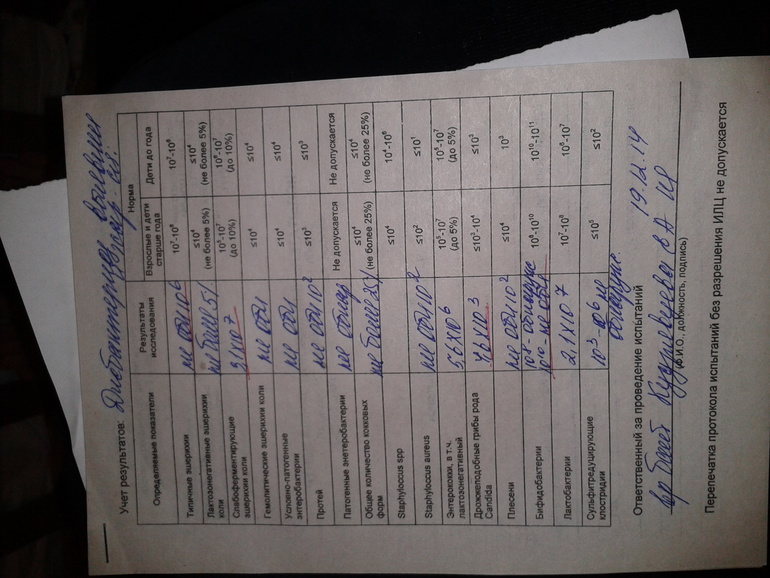 Учет результатов: Дисбактериоз
Определяемые показатели Результаты исследования Норма
Взрослые и дети старше года Дети до года
Типичные эшерихии не обн 10⁶ 10⁷-10⁸ 10⁷-10⁸
Лактозонегативные эшерихии коли не более 5% ≤10⁴ (не более 5%) ≤10⁴ (не более 5%)
Слабоферментирующие эшерихии коли 10⁶-10⁷ (до 10%) 10⁶-10⁷ (до 10%)
Гемолитические эшерихии коли не обн ≤10⁴ ≤10⁴
Условно-патогенные энтеробактерии не обн ≤10⁴ ≤10⁴
Протей не обн 10² ≤10³ ≤10³
Патогенные энтеробактерии не обнар Не допускается Не допускается
Общее количество кокковых форм не более 25% ≤10⁴ (не более 25%) ≤10⁴ (не более 25%)
Staphyloccus spp ≤10⁴ 10⁴-10⁶
Staphyloccus aureus не обн 10² ≤10² ≤10¹
Энтерококки, в т.ч. лактозонегативный 5,6х10⁶ 10⁵-10⁷ (до 5%) 10⁶-10⁷ (до 5%)
Дрожжеподобные грибы рода Candida 4,6х10³ ≤10³-10⁴ ≤10³
Плесени не обн 10² ≤10⁴ 10³
Бифидобактерии 10⁸- 10¹⁰- не обн 10⁸-10¹⁰ 10¹⁰-10¹¹
Лактобактерии 2,1х10⁷ 10⁷-10⁸ 10⁶-10⁷
Сульфитредуцирующие клостридии 10³-10⁶ не ≤10⁵ ≤10²
Ответственный за проведение испытаний 19.12.14
(Ф.И.О., должность, подпись)
Перепечатка протокола испытаний без разрешения ИЛЦ не допускается